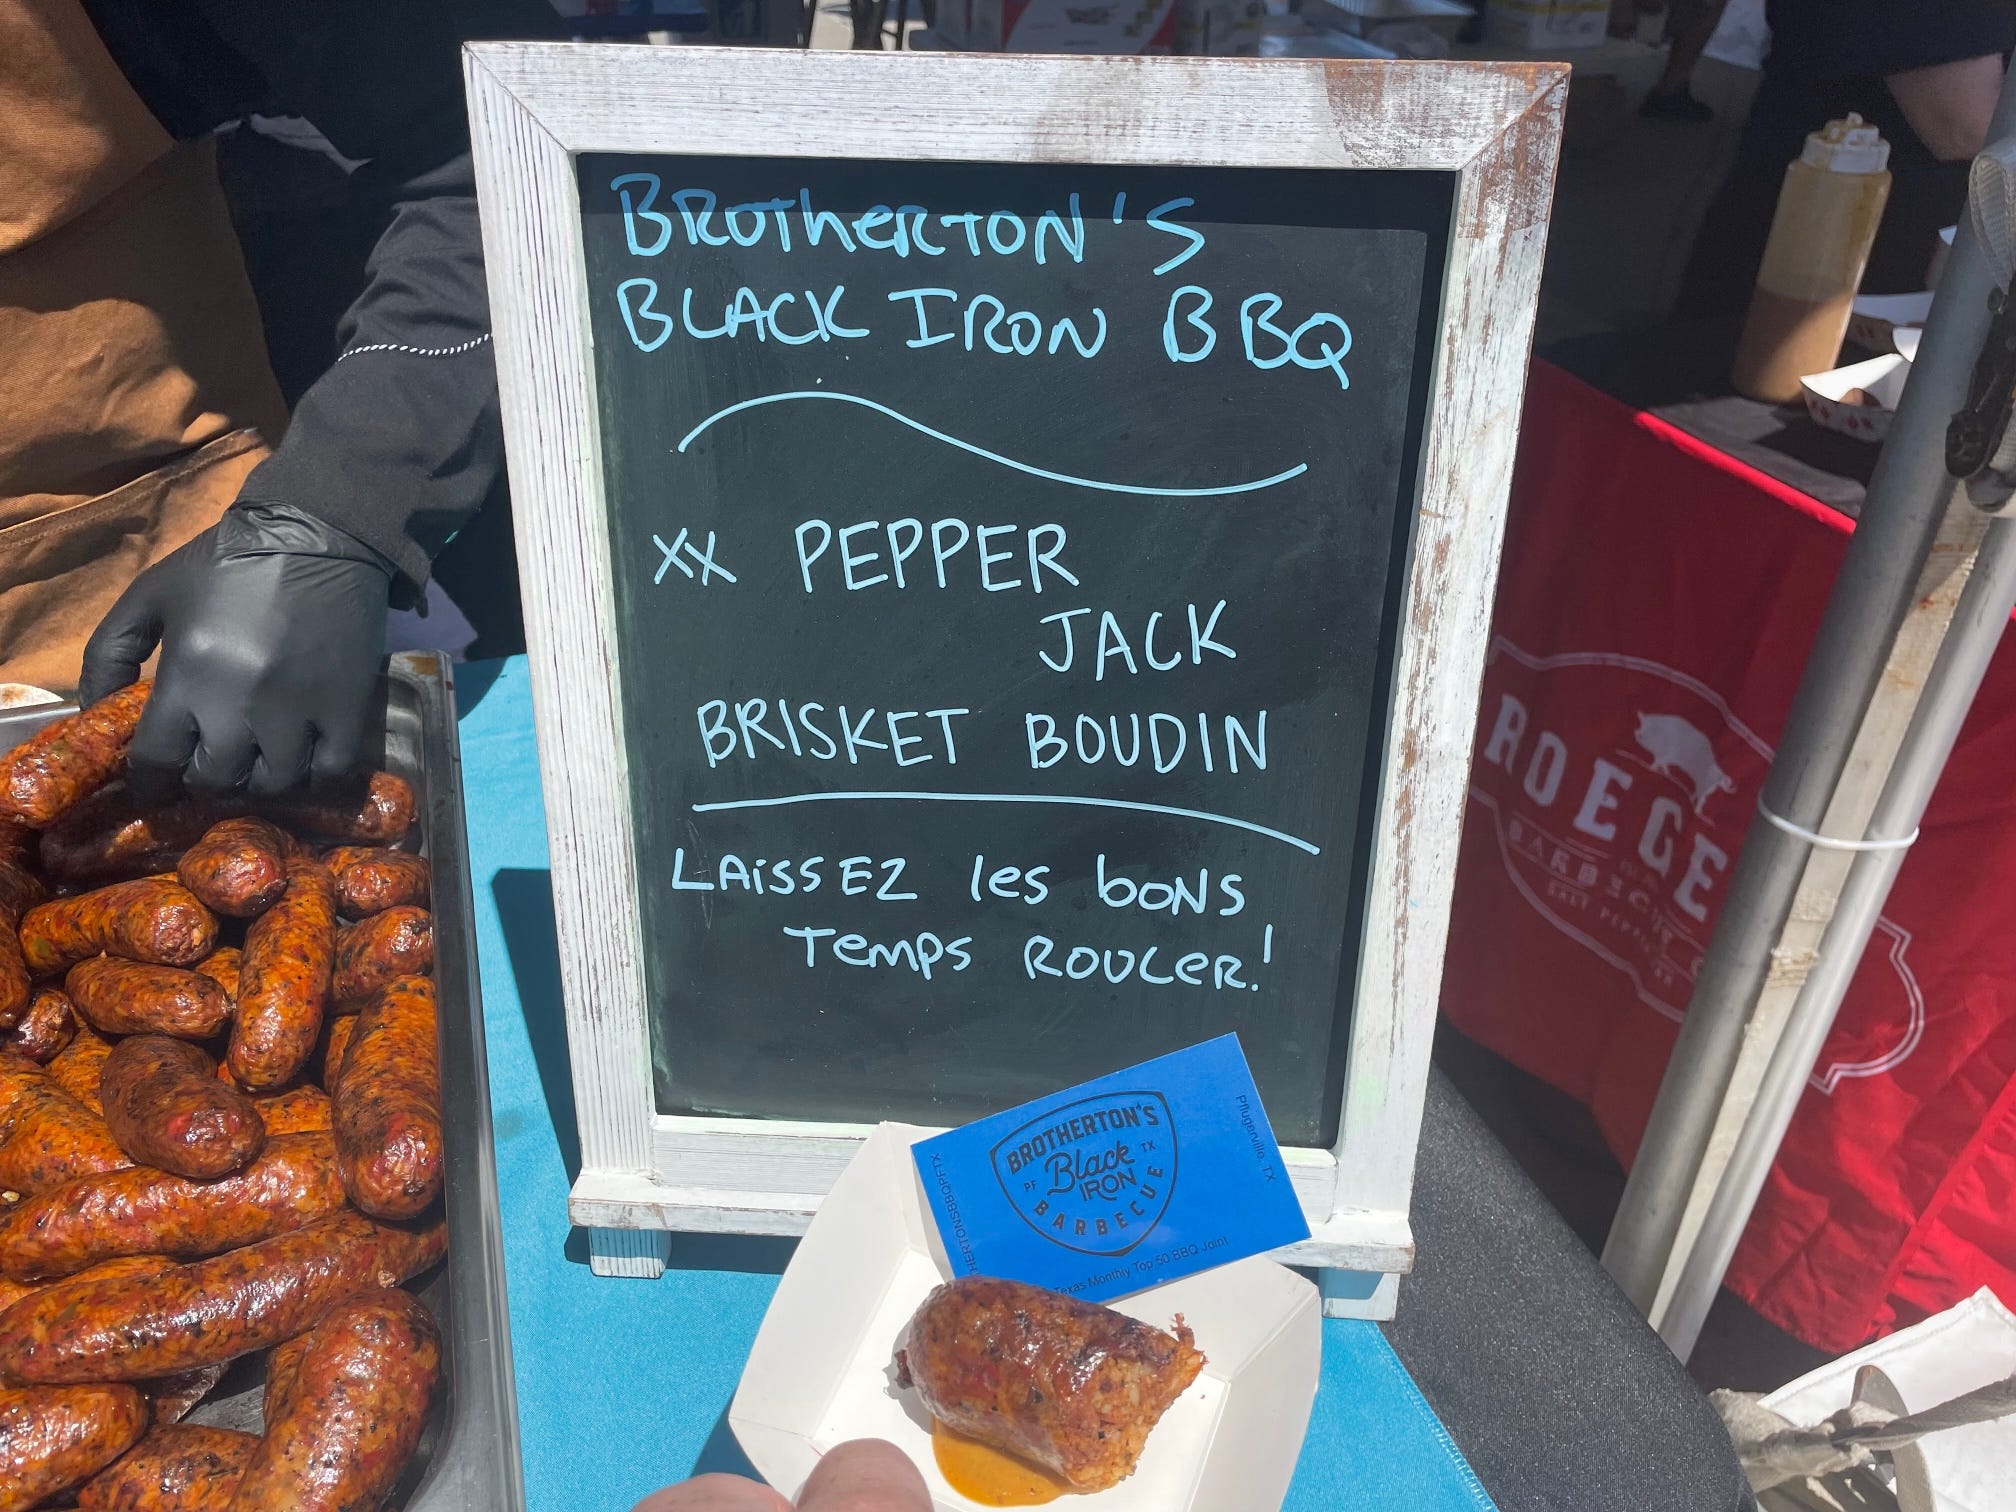 BROTHERTON'S
BLACK IRON BBQ
XX PEPPER
JACK
BRISKET BOUDIN
LAISSEZ les bons
TEMPS ROULER!
BROTHERTON'S
Black
PF TX
IRON
BARBECUE
Pflugerville, TX
HERTONSBBQPFTX
Texas Monthly Top 50 BBQ Joint
ROEGE
BARBECU